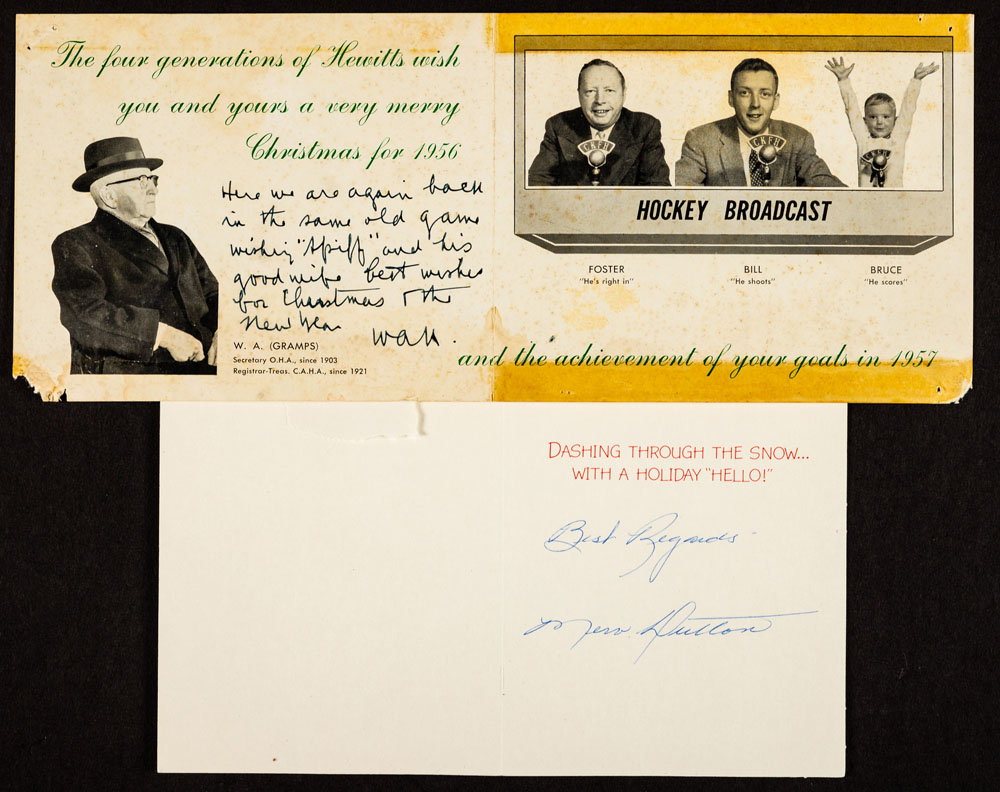 The four generations of Hewitts wish
you and yours a very merry
Christmas for 1956
Here we are again back
in the same old game
wishing "Spiff" and his
good wife best wishes
for Christmas & the
New Year
WAH.
W. A. (GRAMPS)
Secretary O.H.A., since 1903
Registrar-Treas. C.A.H.A., since 1921
CKFH
CKFH
CKFH
HOCKEY BROADCAST
FOSTER
"He's right in"
BILL
"He shoots"
BRUCE
"He scores"
and the achievement of your goals in 1957
DASHING THROUGH THE SNOW...
WITH A HOLIDAY "HELLO!"
Best Regards
Merv Dutton